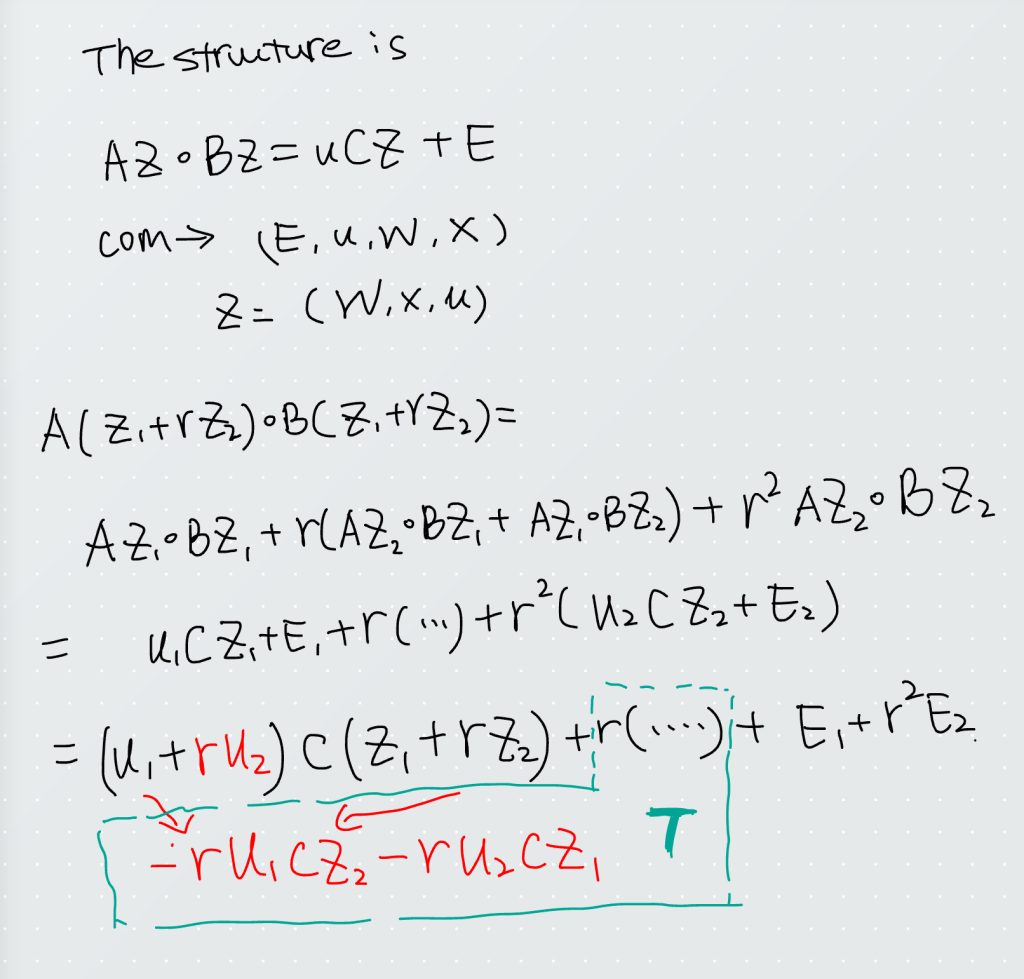 The structure is
AZ∘BZ = uCZ + E
com→ (E, u, W, x)
Z = (W, x, u)
A(Z₁+rZ₂)∘B(Z₁+rZ₂)=
AZ₁∘BZ₁ + r(AZ₂∘BZ₁ + AZ₁∘BZ₂) + r² AZ₂∘BZ₂
= u₁CZ₁+E₁+r(...)+r²(u₂CZ₂+E₂)
= (u₁+ru₂)C(Z₁+rZ₂)+r(....)+ E₁+r²E₂
-ru₁CZ₂-ru₂CZ₁ T